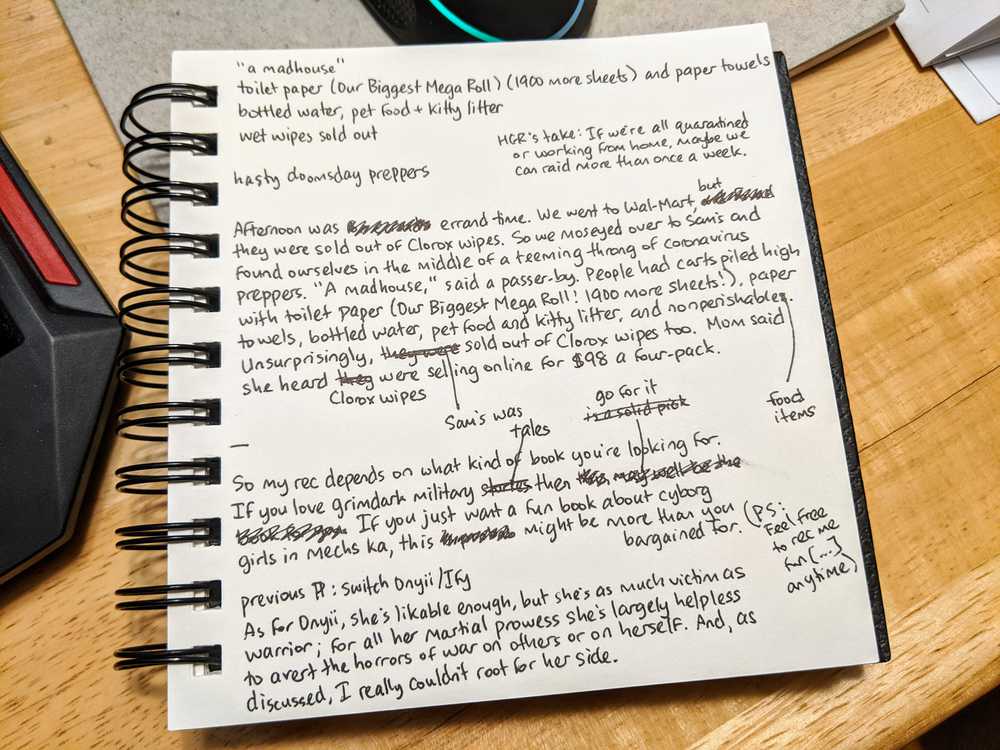 "a madhouse"
toilet paper (Our Biggest Mega Roll) (1900 more sheets) and paper towels
bottled water, pet food + kitty litter
wet wipes sold out
HGR's take: If we're all quarantined
or working from home, maybe we
can raid more than once a week.
hasty doomsday preppers
but
Afternoon was errand time. We went to Wal-Mart,
they were sold out of Clorox wipes. So we moseyed over to Sam's and
found ourselves in the middle of a teeming throng of coronavirus
preppers. "A madhouse," said a passer-by. People had carts piled high
with toilet paper (Our Biggest Mega Roll! 1900 more sheets!), paper
towels, bottled water, pet food and kitty litter, and nonperishables.
Unsurprisingly, they were sold out of Clorox wipes too. Mom said
she heard they were selling online for $98 a four-pack.
Clorox wipes
Sam's was
food
items
go for it
is a solid pick
tales
—
So my rec depends on what kind of book you're looking for.
If you love grimdark military stories then this may well be the
If you just want a fun book about cyborg
girls in mechs ka, this might be more than you
bargained for.
(PS:
Feel free
to rec me
fun [...]
anytime)
previous ¶: switch Onyii/Ify
As for Onyii, she's likable enough, but she's as much victim as
warrior; for all her martial prowess she's largely helpless
to avert the horrors of war on others or on herself. And, as
discussed, I really couldn't root for her side.